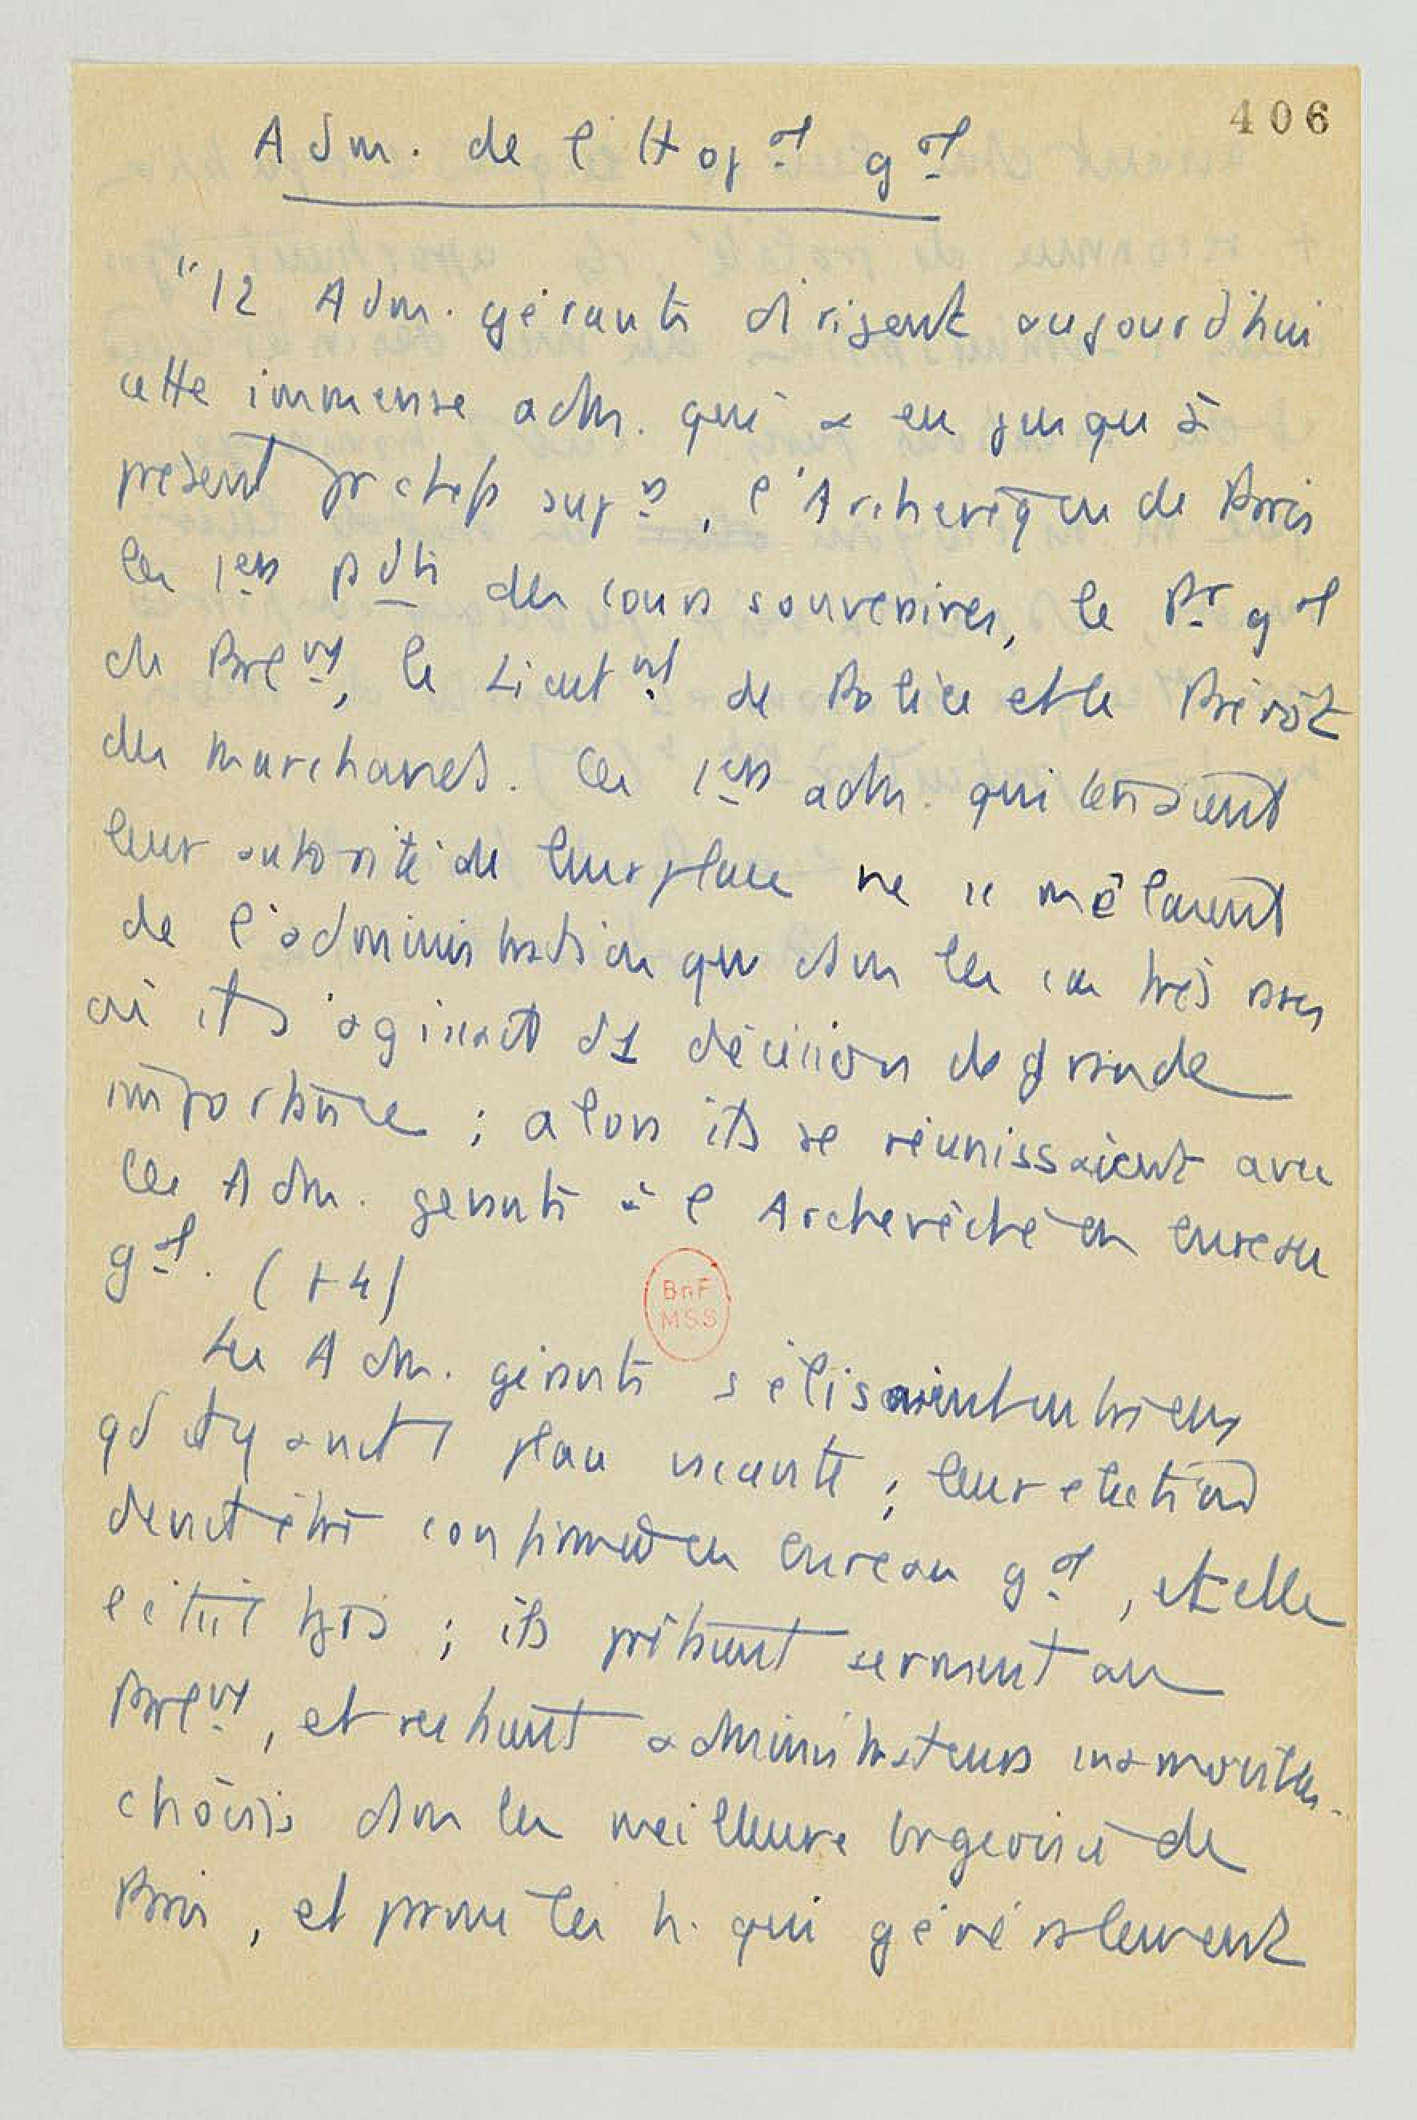 406
Adm. de l'Hopal gal
"12 Adm. gérants dirigent aujourd'hui
cette immense adm. qui a eu jusqu'à
présent pr chefs suprs, l'Archevêque de Paris
les 1ers pdts des cours souveraines, le Pr gal
du Parlemt, le Lieutnt de Police et le Prévôt
des Marchands. Ces 1ers adm. qui tenaient
leur autorité de leur place ne se mêlaient
de l'administration que dans les cas très rares
où il s'agissait d'1 décision de grande
importance ; alors ils se réunissaient avec
les Adm. gérants à l'Archevêché en bureau
gal. (+4)
BnF
MSS
Les Adm. gérants s'élisaient entre eux
qd il y avait 1 place vacante ; leur élection
devait être confirmée en bureau gal, et elle
l'était tjrs ; ils prêtaient serment au
Parlemt, et restaient administrateurs inamovibles.
choisis dans la meilleure bourgeoisie de
Paris, et parmi les h. qui généralement